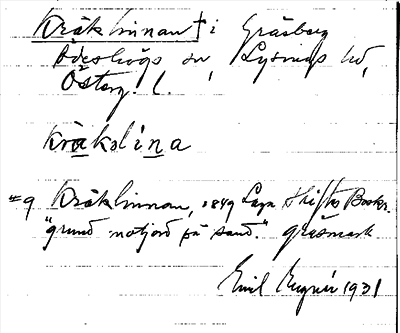 Kråklinnan † i Gräsberg
Ödeshögs sn, Lysings hd,
Österg. l.
kråkslina
Kråklinnan, 1849 Laga Skiftes Beskr.
"grund matjord på sand." gräsmark
Emil 1931